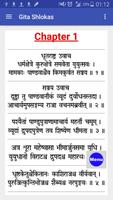 01:12
Gita Shlokas
Chapter 1
धृतराष्ट्र उवाच
धर्मक्षेत्रे कुरुक्षेत्रे समवेता युयुत्सवः ।
मामकाः पाण्डवाश्चैव किमकुर्वत सञ्जय ॥ १ ॥
सञ्जय उवाच
दृष्ट्वा तु पाण्डवानीकं व्यूढं दुर्योधनस्तदा ।
आचार्यमुपसङ्गम्य राजा वचनमब्रवीत् ॥ २ ॥
पश्यैतां पाण्डुपुत्राणामाचार्य महतीं चमूम् ।
व्यूढां द्रुपदपुत्रेण तव शिष्येण धीमता ॥ ३ ॥
अत्र शूरा महेष्वासा भीमार्जुनसमा युधि ।
युयुधानो विराटश्च द्रुपदश्च महारथः
धृष्टकेतुश्चेकितानः काशिराजश्च
पुरुजित्कुन्तिभोजश्च शैब्यश्च
Menu